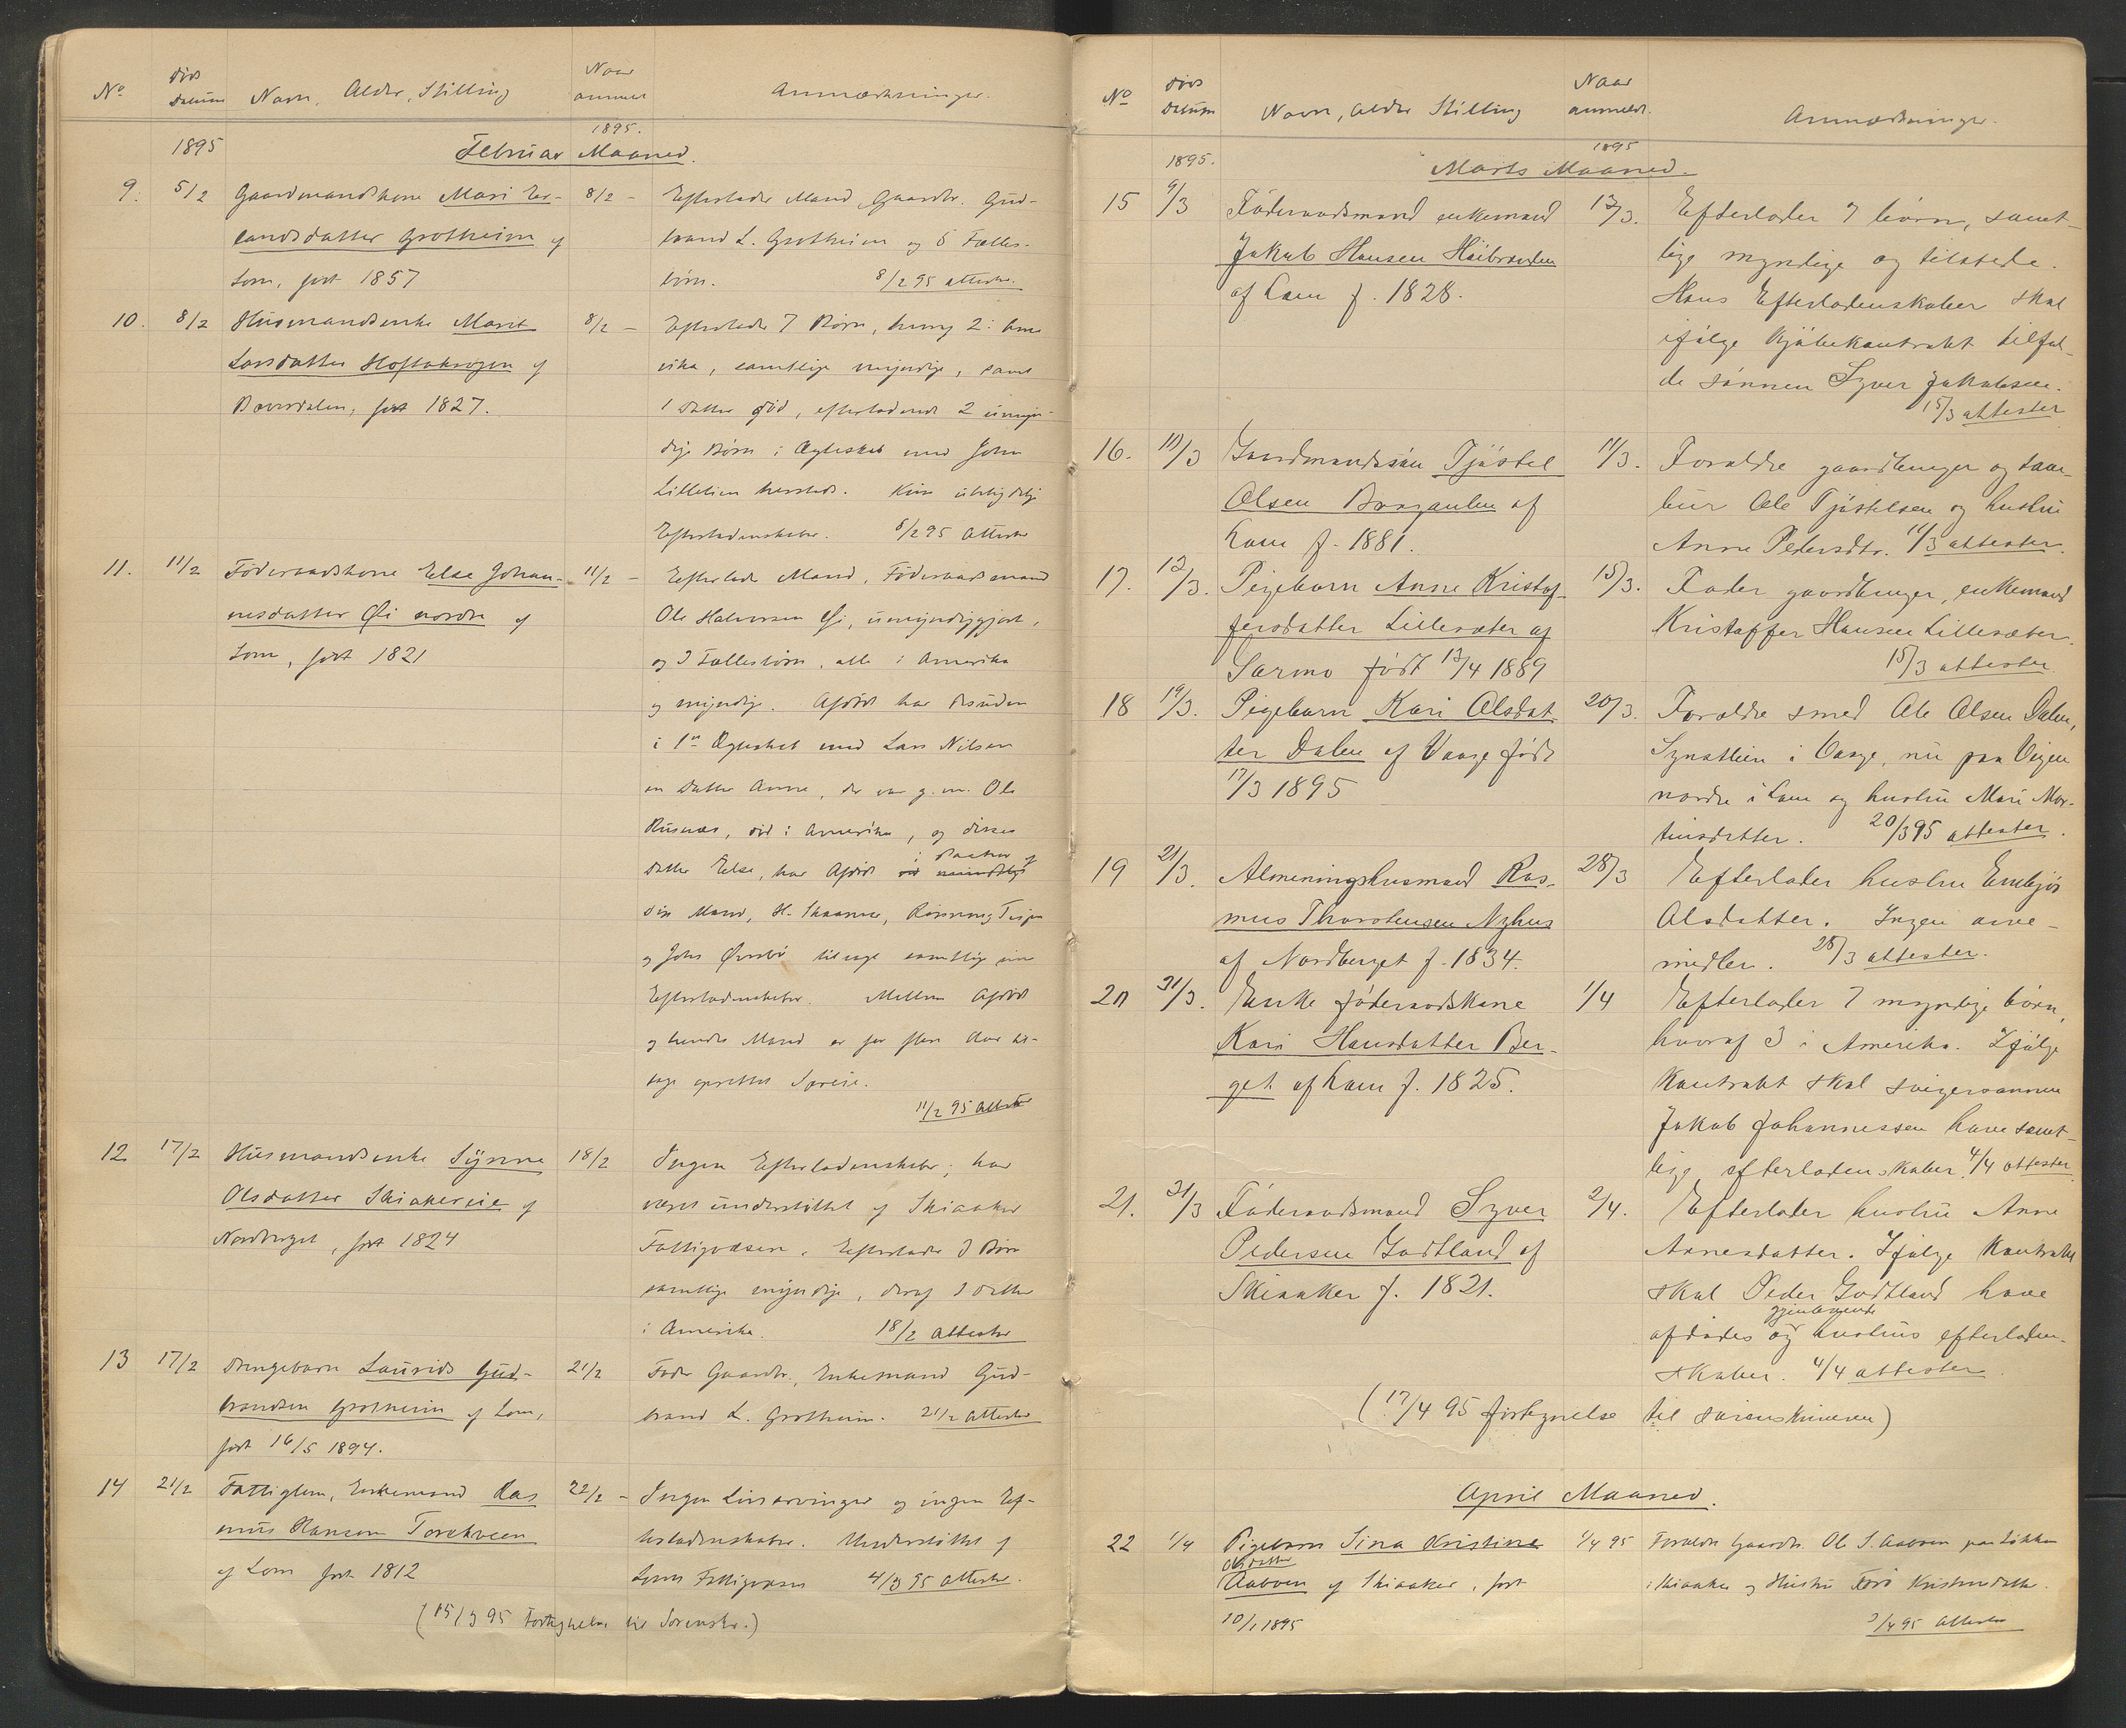 No Døds Datum Navn, Alder, Stilling Naar anmeldt Anmærkninger.
1895 Februar Maaned. 1895.
9. 5/2 Gaardmandskone Mari Er-
landsdatter Grotheim af
Lom, født 1857
8/2 – Efterlader Mand, Gaardbr. Gud-
brand L. Grotheim og 5 Fælles-
børn. 8/2 95 attester.
10. 8/2 Husmandsenke Marit
Larsdatter af
Bæverdalen, født 1827.
8/2 – Efterlader 7 Børn, hvoraf 2 i Ame
rika, samtlige myndige, samt
1 Datter død, efterladende 2 umyn-
dige Børn i Ægteskab med John
Lillelien. Kun ubetydelige
Efterladenskaber. 8/2 95 Attester
11. 11/2 Føderaadskone Else Johan-
nesdatter Øi nordre af
Lom, født 1821
11/2 – Efterlader Mand, Føderaadsmand
Ole Halvorsen Øi, umyndiggjort,
og 3 Fællesbørn, alle i Amerika
og myndige. Afdøde har desuden
i 1ste Ægteskab med Lars Nilsen
en Datter Anne, der var g. m. Ole
død i Amerika, og disses
Datter Else, har Afdøde
sin Mand, H.
og Johs samtlige sine
Efterladenskaber. Mellem Afdøde
og hendes Mand er for flere Aar til-
bage oprettet
11/2 95 Attester
12 17/2 Husmandsenke Synne
Olsdatter Skiakereie af
Nordberget, født 1824
18/2 Ingen Efterladenskaber; har
været understøttet af Skiaaker
Fattigvæsen. Efterlader 3 Børn
samtlige myndige, deraf
i Amerika. 18/2 attester
13 17/2 Drengebarn Laurids Gud-
brandsen Grotheim af Lom,
født 16/5 1894.
21/2 Fader Gaardbr., Enkemand Gud-
brand L. Grotheim. 21/2 Attester
14 21/2 Fattiglem, Enkemand Ras
mus Hansen Torekveen
af Lom født 1812
22/2 – Ingen Livsarvinger og ingen Ef-
terladenskaber. Understøttet af
Loms Fattigvæsen 4/3 95 attester.
(15/3 95 Fortegnelse til Sorenskr.)
No Døds Datum Navn, Alder Stilling Naar anmeldt. Anmærkninger.
1895. Marts Maaned. 1895
15 9/3 Föderaadsmand enkemand
Jakob Hansen Höibraaden
af Lom f. 1828.
13/3. Efterlader 7 börn, samt-
lige myndige og tilstede.
Hans Efterladenskaber skal
ifölge Kjöbekontrakt tilfal-
de sönnen Syver Jakobsen.
15/3 attester
16. 11/3 Gaardmandssön Tjöstel
Olsen af
Lom f. 1881.
11/3. Foreldre gaardbruger og
Ole Tjöstelsen og hustru
Anne Pedersdtr. 11/3 attester.
17. 12/3. Pigebarn Anne Kristof-
fersdatter Lillesæter af
Garmo født 12/4 1889
15/3. Fader gaardbruger, enkemand
Kristoffer Hansen Lillesæter.
15/3 attester.
18 19/3. Pigebarn Kari Olsdat
ter Dalen af Vaage født
17/3 1895
20/3. Foreldre smed Ole Olsen Dalen,
i Vaage, nu paa Vigen
nordre i Lom og hustru Mari Mor-
tinsdatter. 20/3 95 attester.
19 21/3. Almeningshusmand Ras-
mus Thorstensen Nyhus
af Nordberget f. 1834.
28/3 Efterlader hustru Embjör
Olsdatter. Ingen arve-
midler. 28/3 attester.
20 31/3. Enke föderaadskone
Kari Hansdatter Ber-
get af Lom f. 1825.
1/4 Efterlader 7 myndige börn,
hvoraf 3 i Amerika. Ifölge
Kontrakt skal svigersönnen
Jakob Johannessen have samt-
lige efterladenskaber. 4/4 attester
21. 31/3 Föderaadsmand Syver
Pedersen Godtland af
Skiaaker f. 1821.
2/4. Efterlader hustru Anne
Arnesdatter. Ifölge Kontrakt
skal Peder Godtland have
afdödes og gjenlevende hustrus efterladen-
skaber. 4/4 attester.
(17/4 95 fortegnelse til sorenskriveren)
April Maaned.
22 1/4 Pigebarn Sina Kristine
Olsdatter
Aaboen af Skiaaker, født
10/1 1895
1/4 95 Forældre Gaardbr. Ole S. Aaboen paa Løkken
i Skiaaker og Hustru Kristensdatter.
3/4 95 Attester